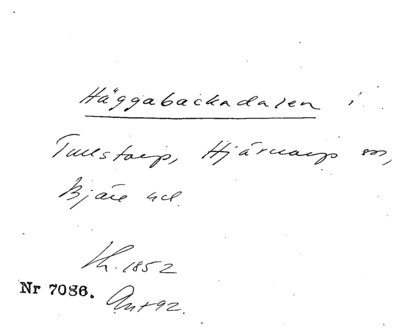 Häggabackadalen i
Tullstorp, Hjärnarp sn,
Bjäre hd.
Lh. 1852
Nr 7086. Ant 92.